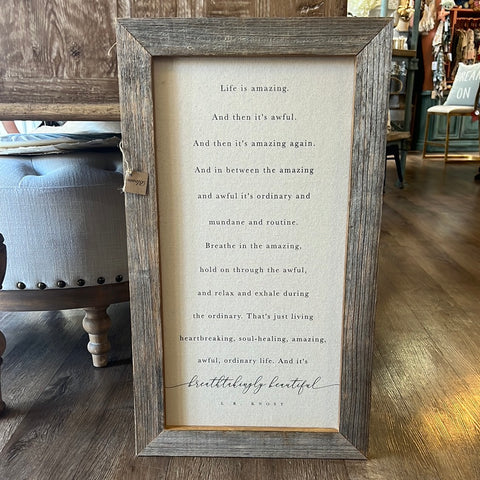 Life is amazing.
And then it's awful.
And then it's amazing again.
And in between the amazing
and awful it's ordinary and
mundane and routine.
Breathe in the amazing,
hold on through the awful,
and relax and exhale during
the ordinary. That's just living
heartbreaking, soul-healing, amazing,
awful, ordinary life. And it's
breathtakingly beautiful
L. R. KNOST